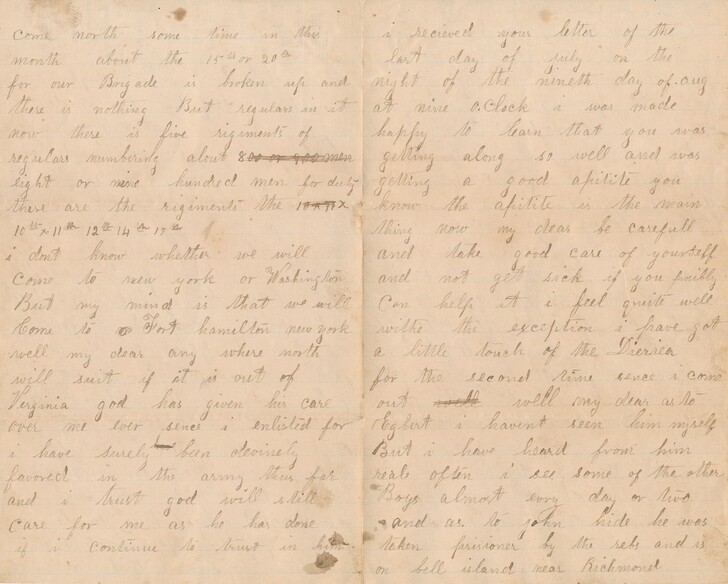 come north some time in this
month about the 15th or 20th
for our Brigade is broken up and
there is nothing But regulars in it
now there is five rigiments of
regulars numbering about 800 or 900 men
eight or nine hundred men for duty
there are the rigiments the
10th x 11th 12th 14th 17th
i dont know whether we will
come to new york or Washington
But my mind is that we will
Come to Fort hamilton new york
well my dear any where north
will suit if it is out of
Virginia god has given his care
over me ever sence i enlisted for
i have surely been devinely
favored in the army thus far
and i trust god will still
care for me as he has done
if i continue to trust in him
i recieved your letter of the
last day of july on the
night of the nineth day of aug
at nine O.Clock i was made
happy to learn that you was
getting along so well and was
getting a good apitite you
know the apitite is the main
thing now my dear be carefull
and take good care of yourself
and not get sick if you
Can help it i feel quite well
withe the exception i have got
a little touch of the
for the second time sence i come
out well my dear as to
Egbert i havent seen him myself
But i have heard from him
reale often i see some of the other
Boys almost evry day or two
and as to john hide he was
taken prisioner by the rebs and is
on bell island near Richmond